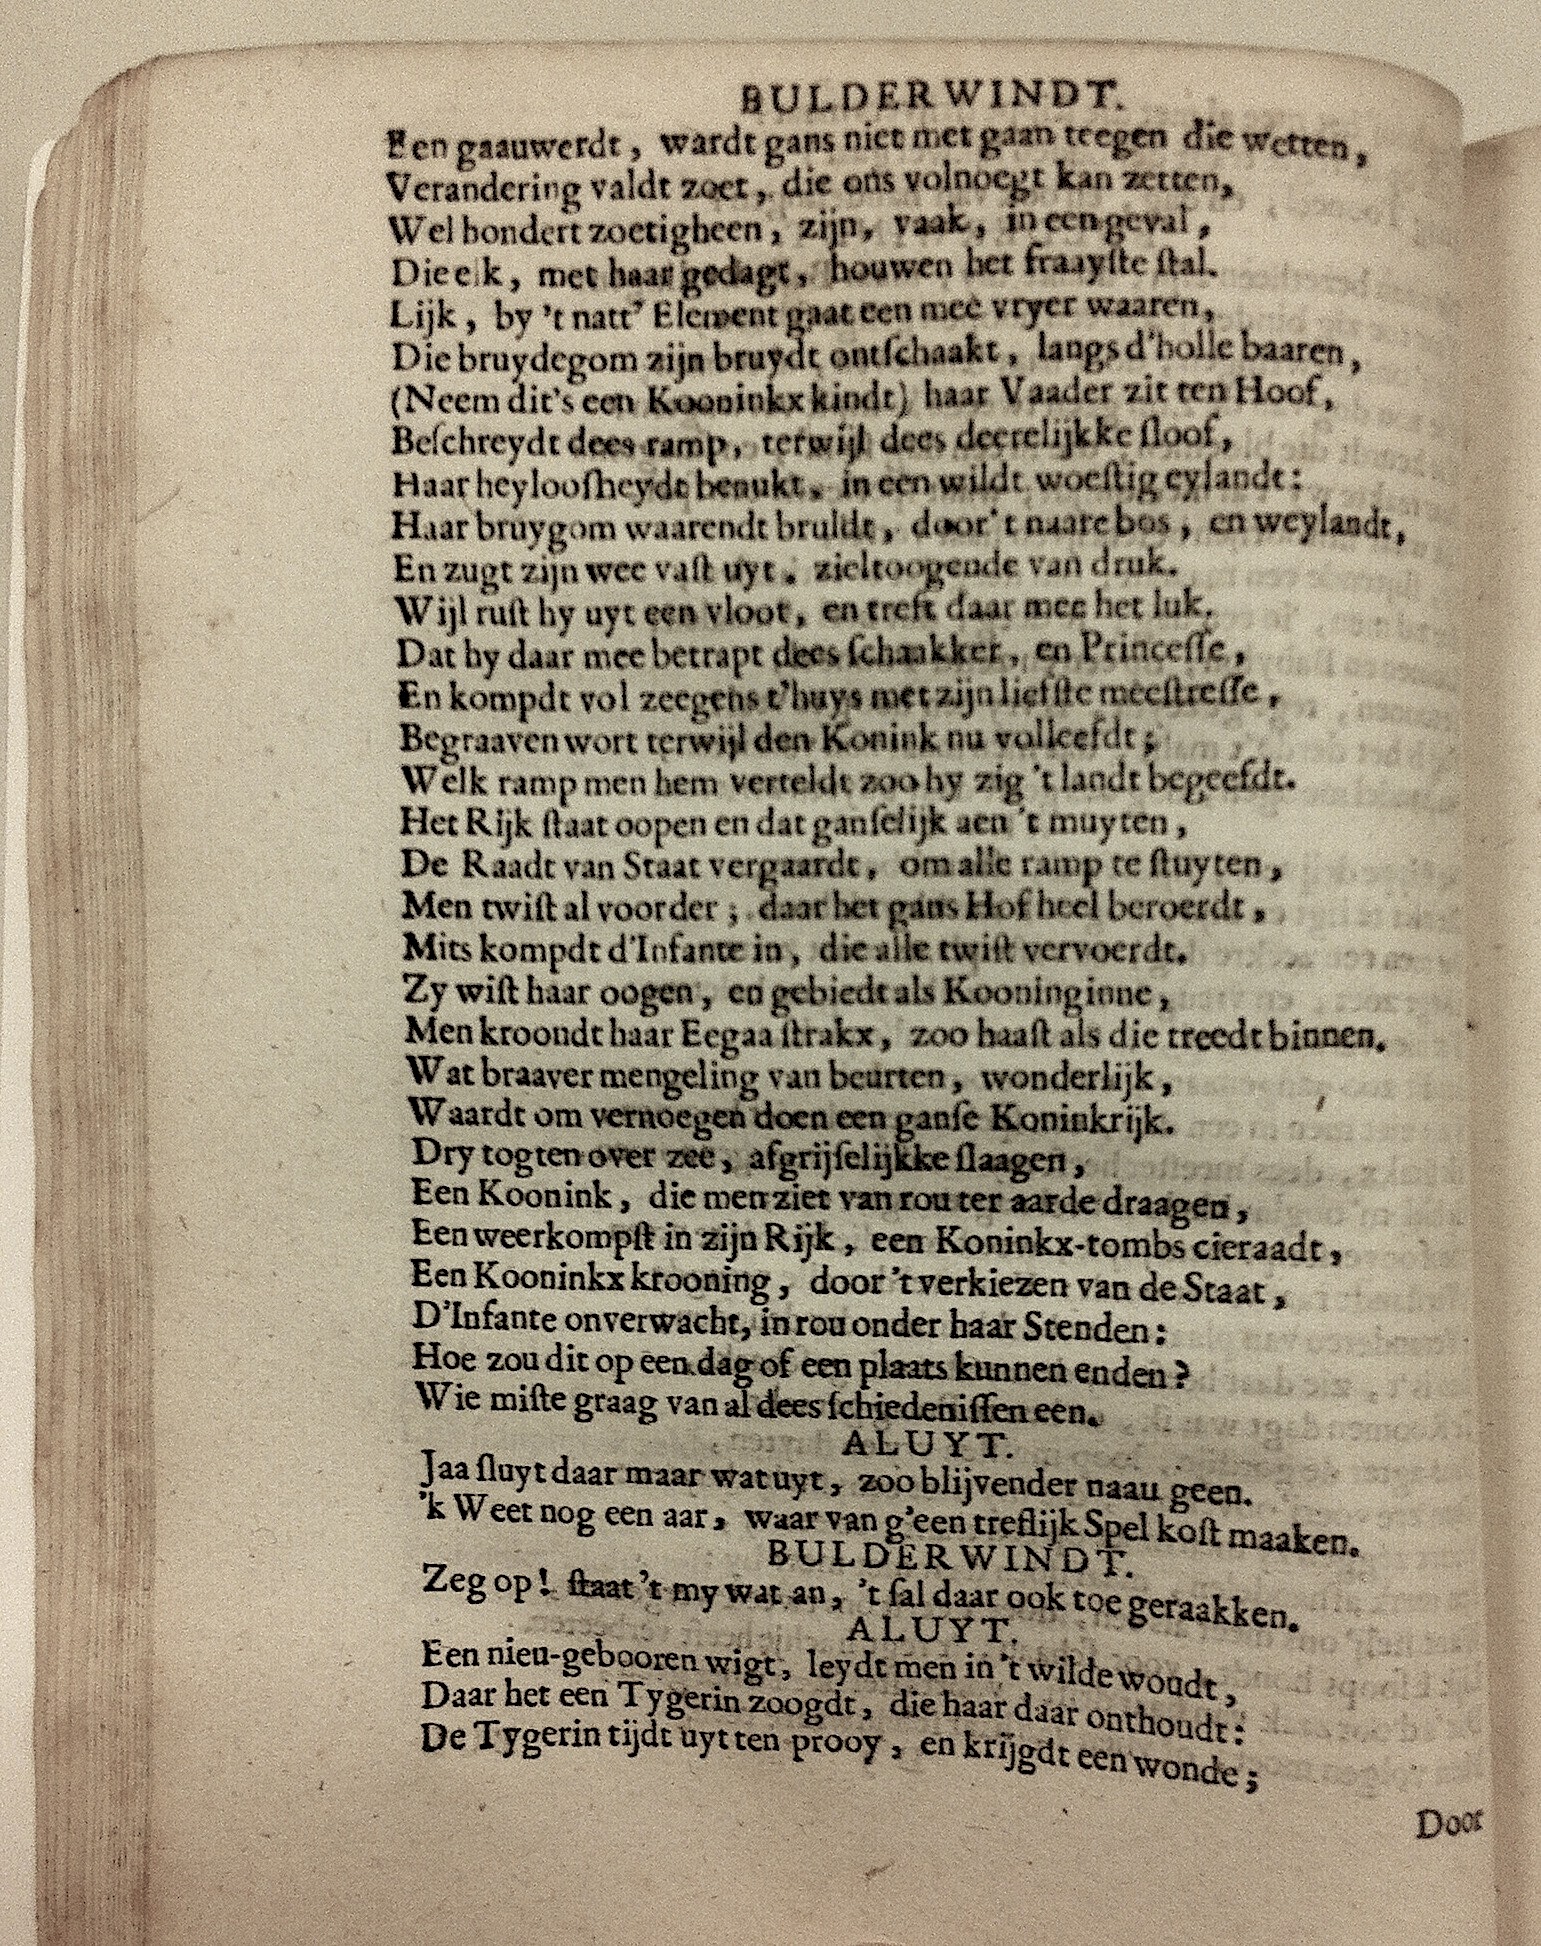 BULDERWINDT.
Een gaauwerdt, wardt gans niet met gaan teegen die wetten,
Verandering valdt zoet, die ons volnoegt kan zetten,
Wel hondert zoetigheen, zijn, vaak, in een geval,
Die elk, met haar gedagt, houwen het fraayſte ſtal.
Lijk, by 't natt' Element gaat een mee vryer waaren,
Die bruydegom zijn bruydt ontſchaakt, langs d'holle baaren,
(Neem dit's een Kooninkx kindt) haar Vaader zit ten Hoof,
Beſchreydt dees ramp, terwijl dees deerelijkke ſloof,
Haar heylooſheydt benukt, in een wildt woeſtig eylandt:
Haar bruygom waarendt bruldt, door't naare bos, en weylandt,
En zugt zijn wee vaſt uyt, zieltoogende van druk.
Wijl ruſt hy uyt een vloot, en treft daar mee het luk,
Dat hy daar mee betrapt dees ſchaakker, en Princeſſe,
En kompdt vol zeegens t'huys met zijn liefſte meeſtreſſe,
Begraaven wort terwijl den Konink nu volleefdt;
Welk ramp men hem verteldt zoo hy zig 't landt begeefdt.
Het Rijk ſtaat oopen en dat ganſelijk aen 't muyten,
De Raadt van Staat vergaardt, om alle ramp te ſtuyten,
Men twiſt al voorder; daar het gans Hof heel beroerdt,
Mits kompdt d'Infante in, die alle twiſt vervoerdt.
Zy wiſt haar oogen, en gebiedt als Kooninginne,
Men kroondt haar Eegaa ſtrakx, zoo haaſt als die treedt binnen.
Wat braaver mengeling van beurten, wonderlijk,
Waardt om vernoegen doen een ganſe Koninkrijk.
Dry togten over zee, afgrijſelijkke ſlaagen,
Een Koonink, die men ziet van rou ter aarde draagen,
Een weerkompſt in zijn Rijk, een Koninkx-tombs cieraadt,
Een Kooninkx krooning, door 't verkiezen van de Staat,
D'Infante onverwacht, in rou onder haar Stenden:
Hoe zou dit op een dag of een plaats kunnen enden?
Wie miſte graag van al dees ſchiedeniſſen een.
ALUYT.
Jaa ſluyt daar maar wat uyt, zoo blijvender naau geen.
'k Weet nog een aar, waar van g'een treflijk Spel koſt maaken.
BULDERWINDT.
Zeg op! ſtaat 't my wat an, 't ſal daar ook toe geraakken.
ALUYT.
Een nieu-gebooren wigt, leydt men in 't wilde woudt,
Daar het een Tygerin zoogdt, die haar daar onthoudt:
De Tygerin tijdt uyt ten prooy, en krijgdt een wonde;
Door